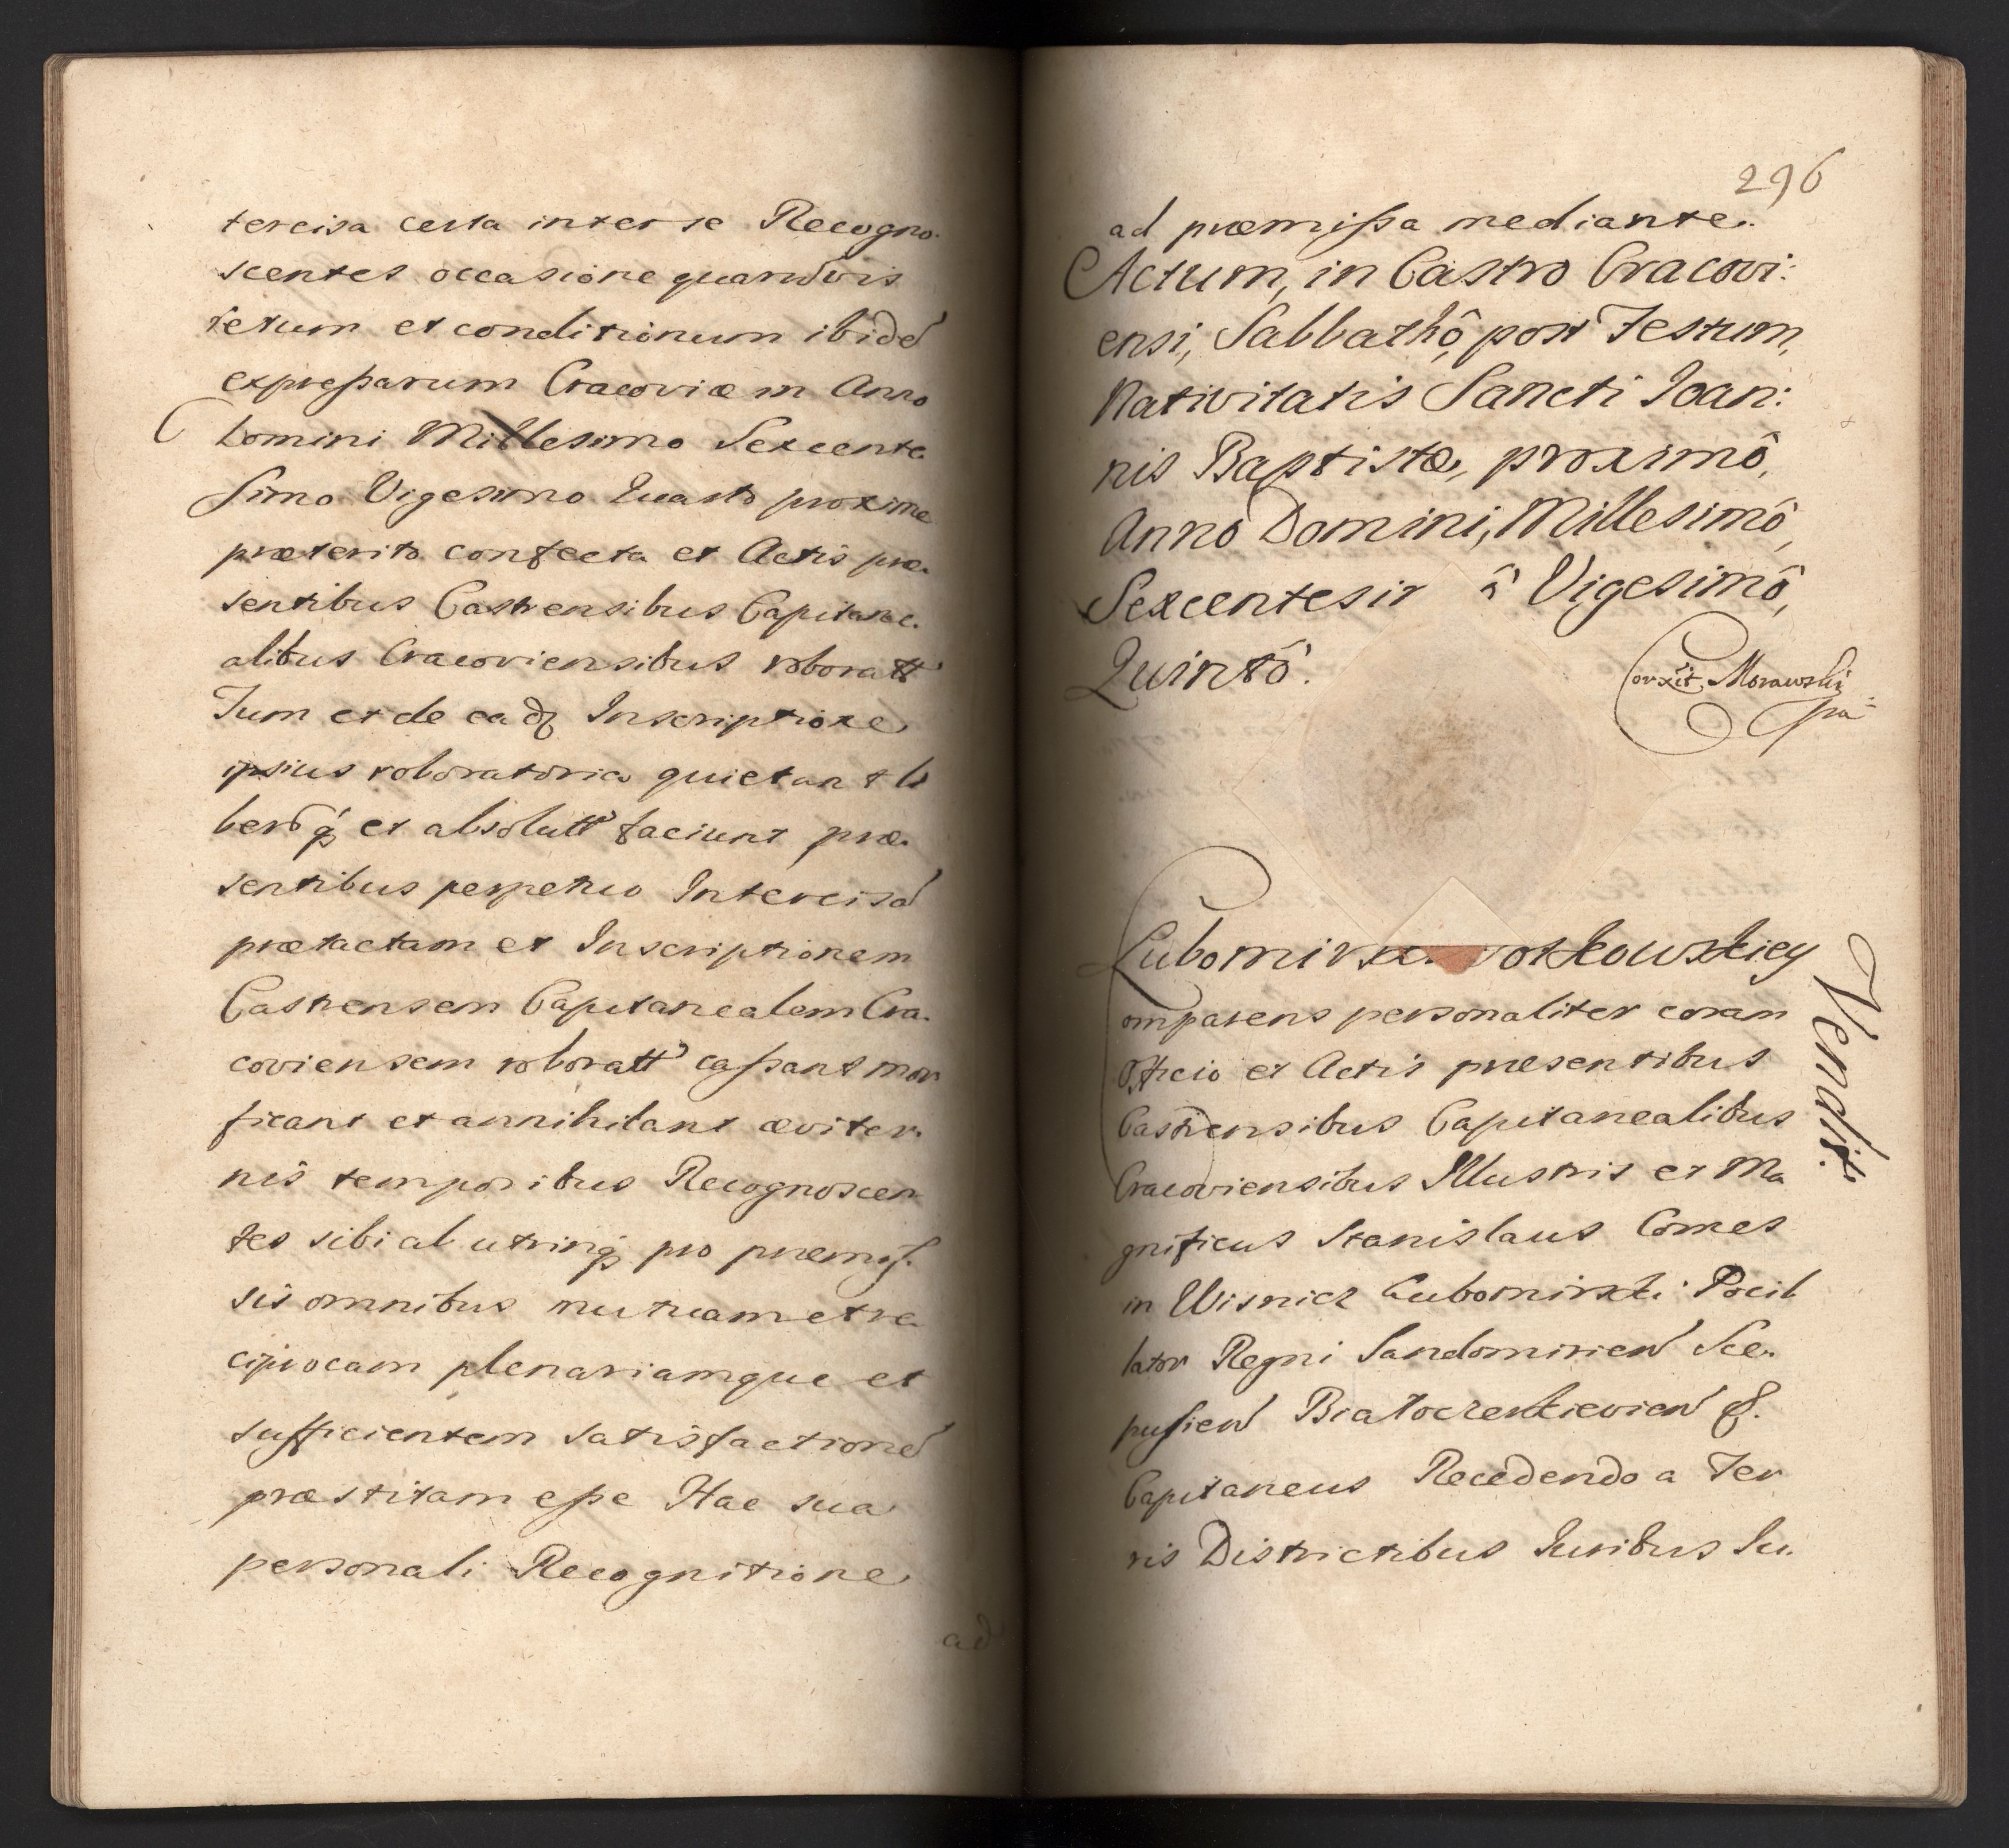 tercisa certa inter se Recogno-
scentes occasione quarũvis
rerum et conditionum ibidẽ
expressarum Cracoviæ in Anno
Domini Millesimo Sexcente
simo Vigesimo Quarto proxime
præterito confecta et Actis præ-
sentibus Castrensibus Capitane-
alibus Cracoviensibus roboratt
Tum et de eadq Inscriptione
ipsius roboratoria quietant li
berosq et absolutt faciunt præ-
sentibus perpetuo Intercisã
prætactam et Inscriptionem
Castrensem Capitanealem Cra-
coviensem roboratt cassant mor
ficant et annihilant æviter-
nis temporibus Recognoscen
tes sibi ab utrinq pro præmis-
sis omnibus mutuam et re
ciprocam plenariamque et
sufficientem satisfactionẽ
præstitam esse Hac sua
personali Recognitione
ad
296
ad præmissa mediante.
Actum, in Castro Cracovi:
ensi, Sabbathô, post Festum,
Nativitatis Sancti Ioan:
nis Baptistæ, proximô,
Annô Domini, Millesimô,
Sexcentesi ô Vigesimô,
Quintô.
Corxit Morawski
pa
Lubomirs owskiey
Vendit.
omparens personaliter coram
Officio et Actis præsentibus
Castrensibus Capitanealibus
Cracoviensibus Illustris et Ma
gnificus Stanislaus Comes
in Wisnicz Lubomirski Pocil
lator Regni Sandomirien Sce-
pusien Białocerkievien &.
Capitaneus Recedendo a Ter
ris Districtibus Iuribus Iu-